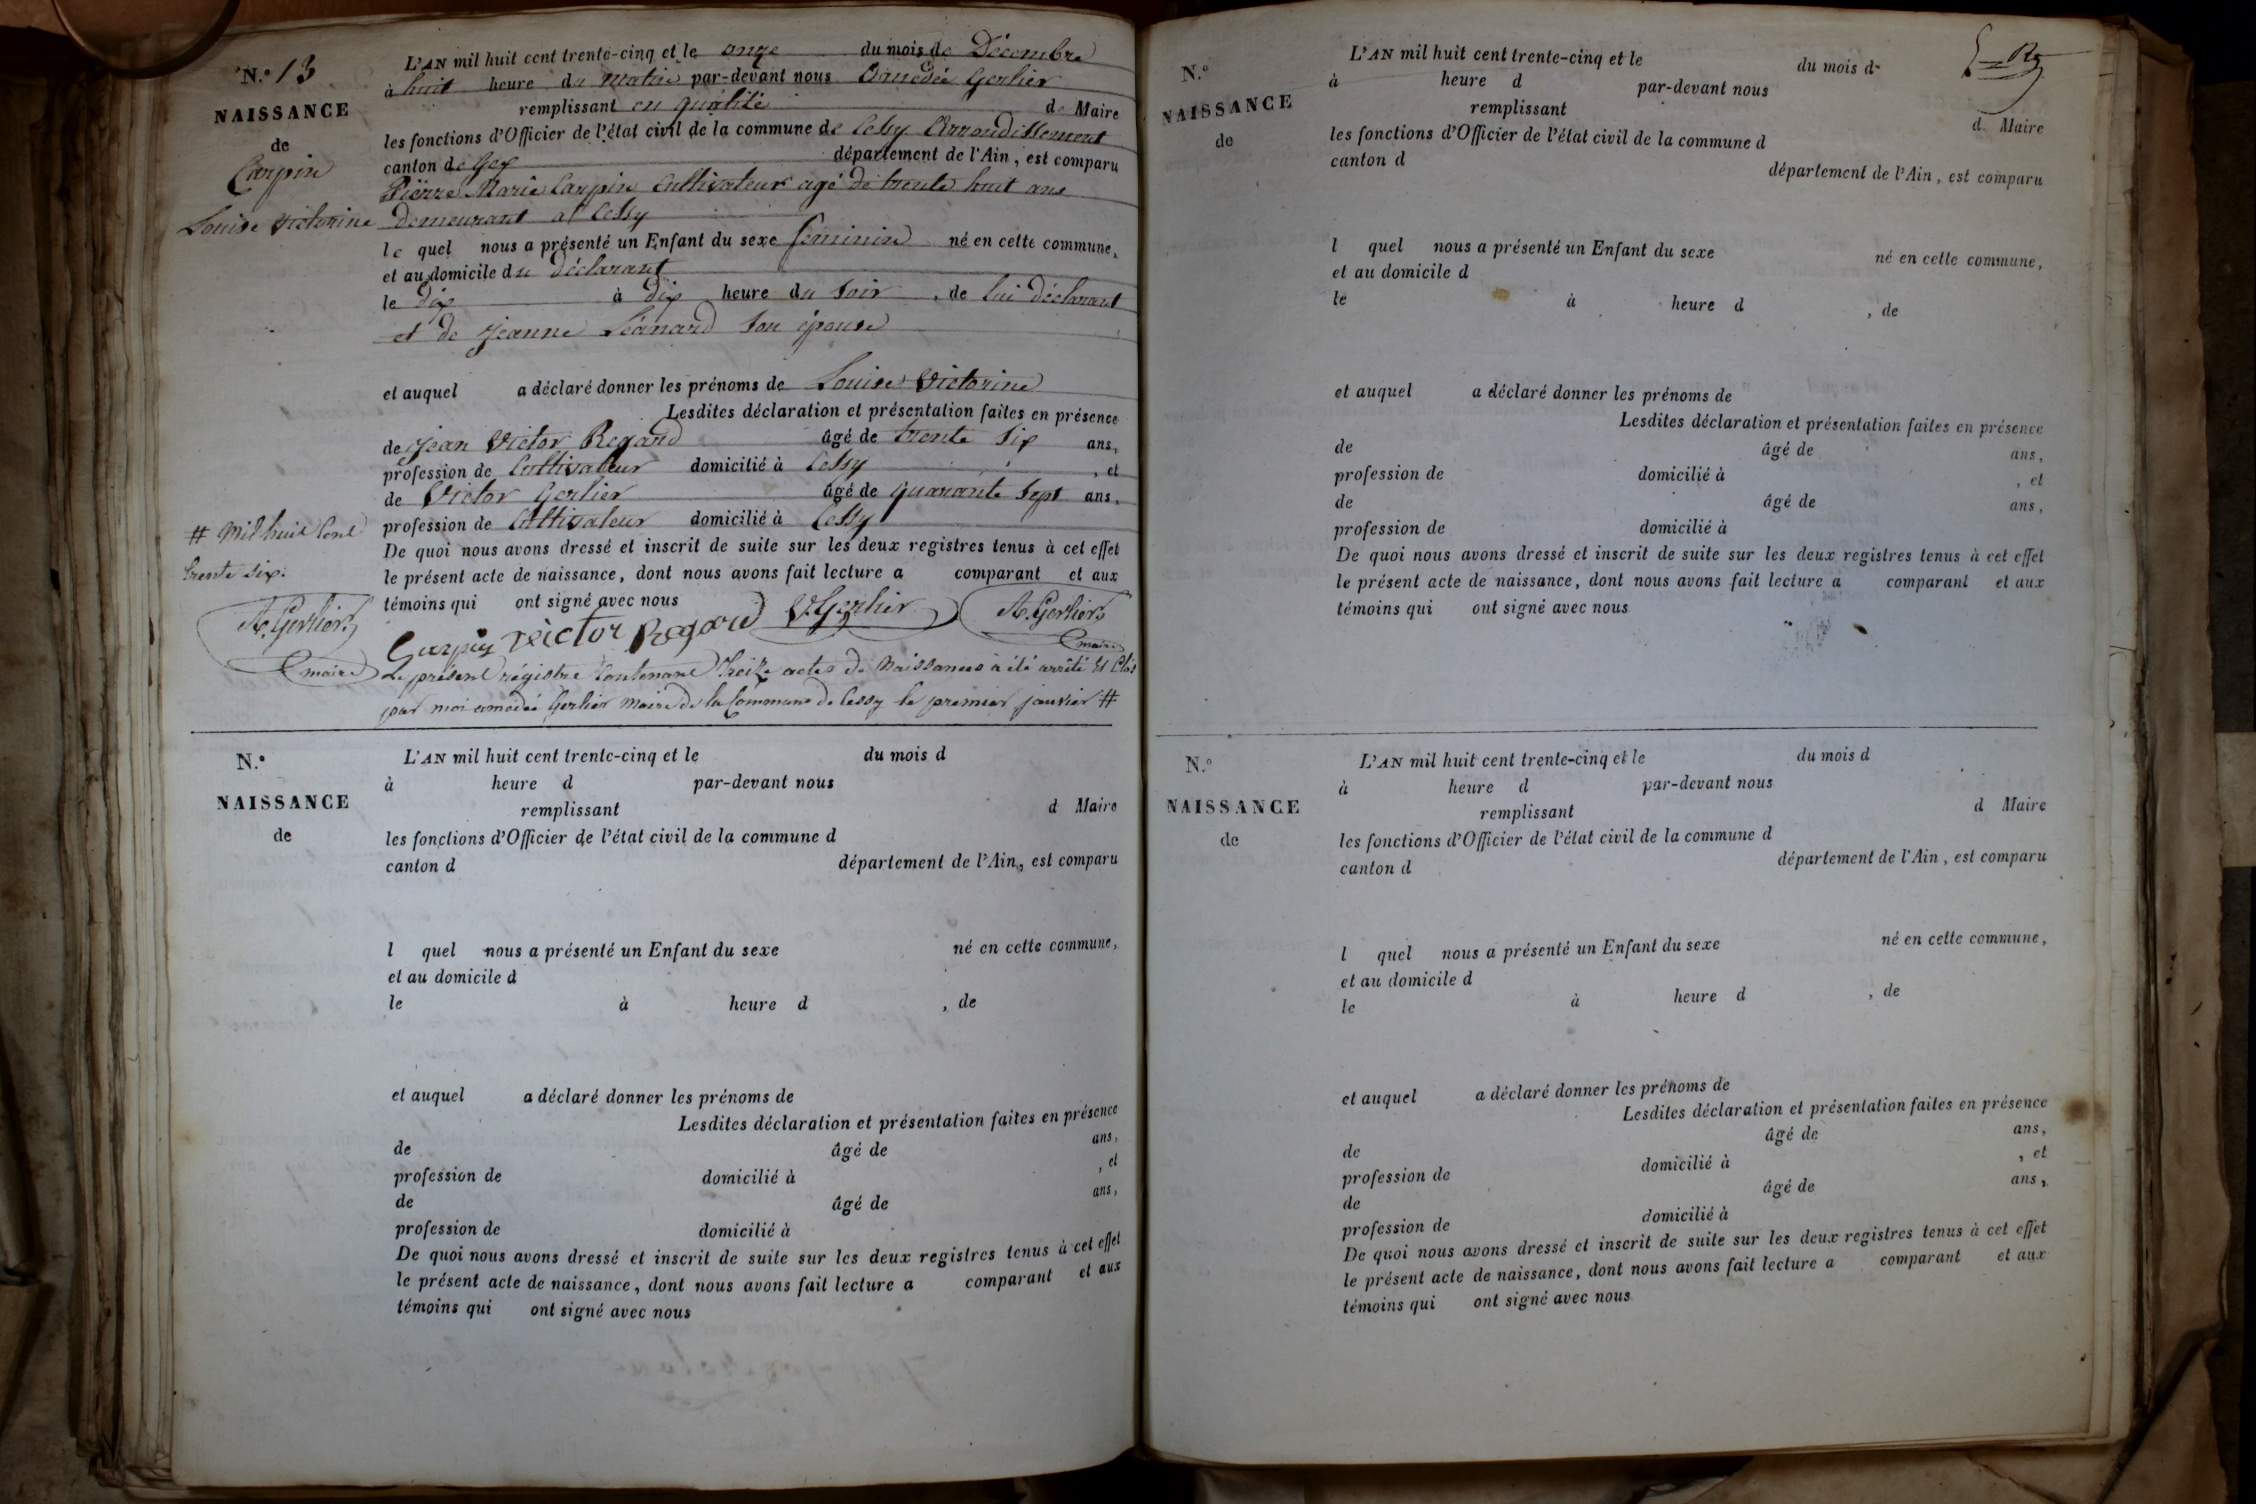 N.° 13
NAISSANCE
de
Carpin
Louise Victorine
L'AN mil huit cent trente-cinq et le onze du mois de Décembre
à huit heure du matin par-devant nous Amédée Gerlier
remplissant en qualité de Maire
les fonctions d'Officier de l'état civil de la commune de Cessy Arrondissement
canton de Gex département de l'Ain, est comparu
Pierre Marie Carpin Cultivateur agé de trente huit ans
demeurant a Cessy
le quel nous a présenté un Enfant du sexe féminin né en cette commune,
et au domicile du déclarant
le dix à dix heure du soir, de lui déclarant
et de Jeanne Léanard son épouse
et auquel a déclaré donner les prénoms de Louise Victorine
Lesdites déclaration et présentation faites en présence
de Jean Victor Regard âgé de trente six ans,
profession de Cultivateur domicilié à Cessy, et
de Victor Gerlier âgé de quarante sept ans,
profession de Cultivateur domicilié à Cessy
De quoi nous avons dressé et inscrit de suite sur les deux registres tenus à cet effet
le présent acte de naissance, dont nous avons fait lecture a comparant et aux
témoins qui ont signé avec nous
Carpin Victor Regard V. Gerlier A. Gerlier
maire
Le présent régistre Contenant Treize actes de Naissances a été arrêté Et Clos
par moi amédée Gerlier Maire de la Commune de Cessy le premier janvier #
# Mil huit Cent
trente six.
A. Gerlier
maire
N.°
NAISSANCE
de
L'AN mil huit cent trente-cinq et le du mois d
à heure d par-devant nous
remplissant d Maire
les fonctions d'Officier de l'état civil de la commune d
canton d département de l'Ain, est comparu
l quel nous a présenté un Enfant du sexe né en cette commune,
et au domicile d
le à heure d , de
et auquel a déclaré donner les prénoms de
Lesdites déclaration et présentation faites en présence
de âgé de ans,
profession de domicilié à , et
de âgé de ans,
profession de domicilié à
De quoi nous avons dressé et inscrit de suite sur les deux registres tenus à cet effet
le présent acte de naissance, dont nous avons fait lecture a comparant et aux
témoins qui ont signé avec nous
N.°
NAISSANCE
de
L'AN mil huit cent trente-cinq et le du mois d
à heure d par-devant nous
remplissant d Maire
les fonctions d'Officier de l'état civil de la commune d
canton d département de l'Ain, est comparu
l quel nous a présenté un Enfant du sexe né en cette commune,
et au domicile d
le à heure d , de
et auquel a déclaré donner les prénoms de
Lesdites déclaration et présentation faites en présence
de âgé de ans,
profession de domicilié à , et
de âgé de ans,
profession de domicilié à
De quoi nous avons dressé et inscrit de suite sur les deux registres tenus à cet effet
le présent acte de naissance, dont nous avons fait lecture a comparant et aux
témoins qui ont signé avec nous
N.°
NAISSANCE
de
L'AN mil huit cent trente-cinq et le du mois d
à heure d par-devant nous
remplissant d Maire
les fonctions d'Officier de l'état civil de la commune d
canton d département de l'Ain, est comparu
l quel nous a présenté un Enfant du sexe né en cette commune,
et au domicile d
le à heure d , de
et auquel a déclaré donner les prénoms de
Lesdites déclaration et présentation faites en présence
de âgé de ans,
profession de domicilié à , et
de âgé de ans,
profession de domicilié à
De quoi nous avons dressé et inscrit de suite sur les deux registres tenus à cet effet
le présent acte de naissance, dont nous avons fait lecture a comparant et aux
témoins qui ont signé avec nous